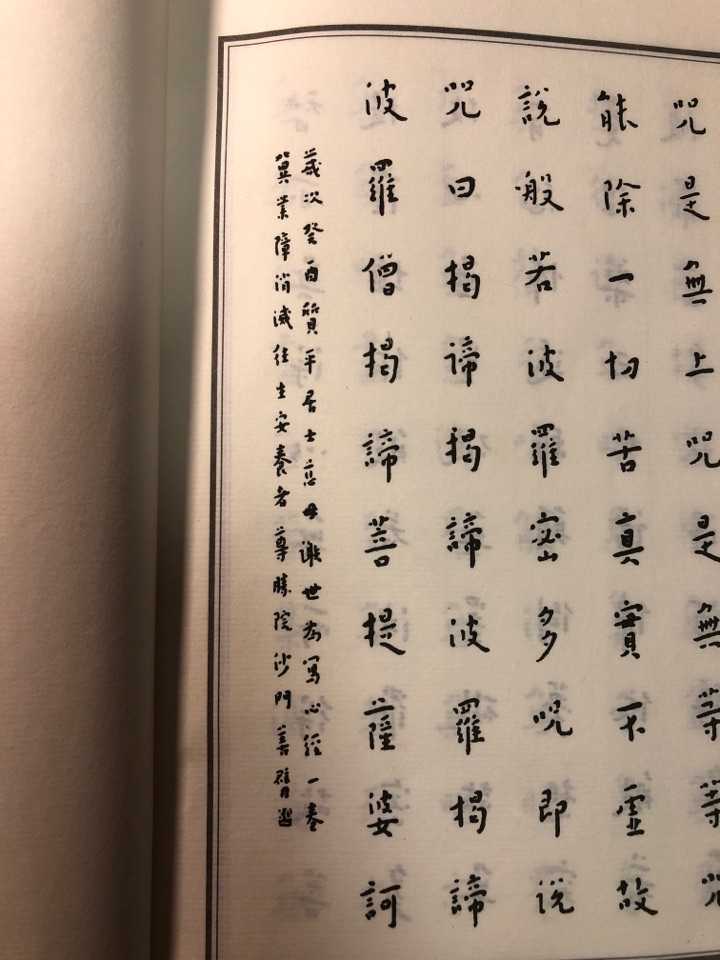 咒是無上咒是無等等咒
能除一切苦真實不虛故
說般若波羅密多咒即說
咒曰揭諦揭諦波羅揭諦
波羅僧揭諦菩提薩婆訶
歲次癸酉質平居士喪母謝世為寫心經一卷
冀業障消滅往生安養者尊勝院沙門善